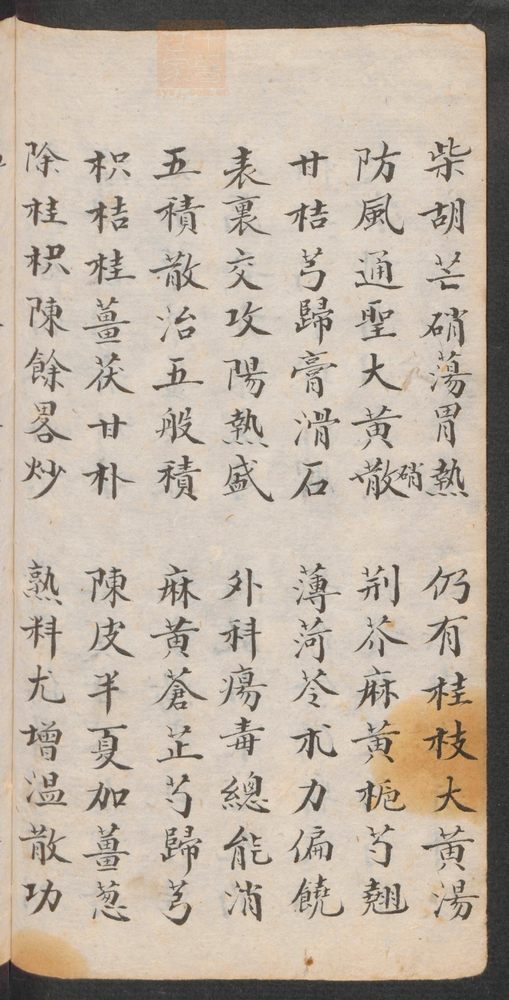 柴胡芒硝蕩胃熱 仍有桂枝大黃湯
防風通聖大黃散硝 荆芥麻黃梔芍翹
甘桔芎歸膏滑石 薄荷芩朮力偏饒
表裏交攻陽熱盛 外科瘍毒總能消
五積散治五般積 麻黃蒼芷芍歸芎
枳桔桂薑茯甘朴 陳皮半夏加薑葱
除桂枳陳餘畧炒 熟料尤增溫散功